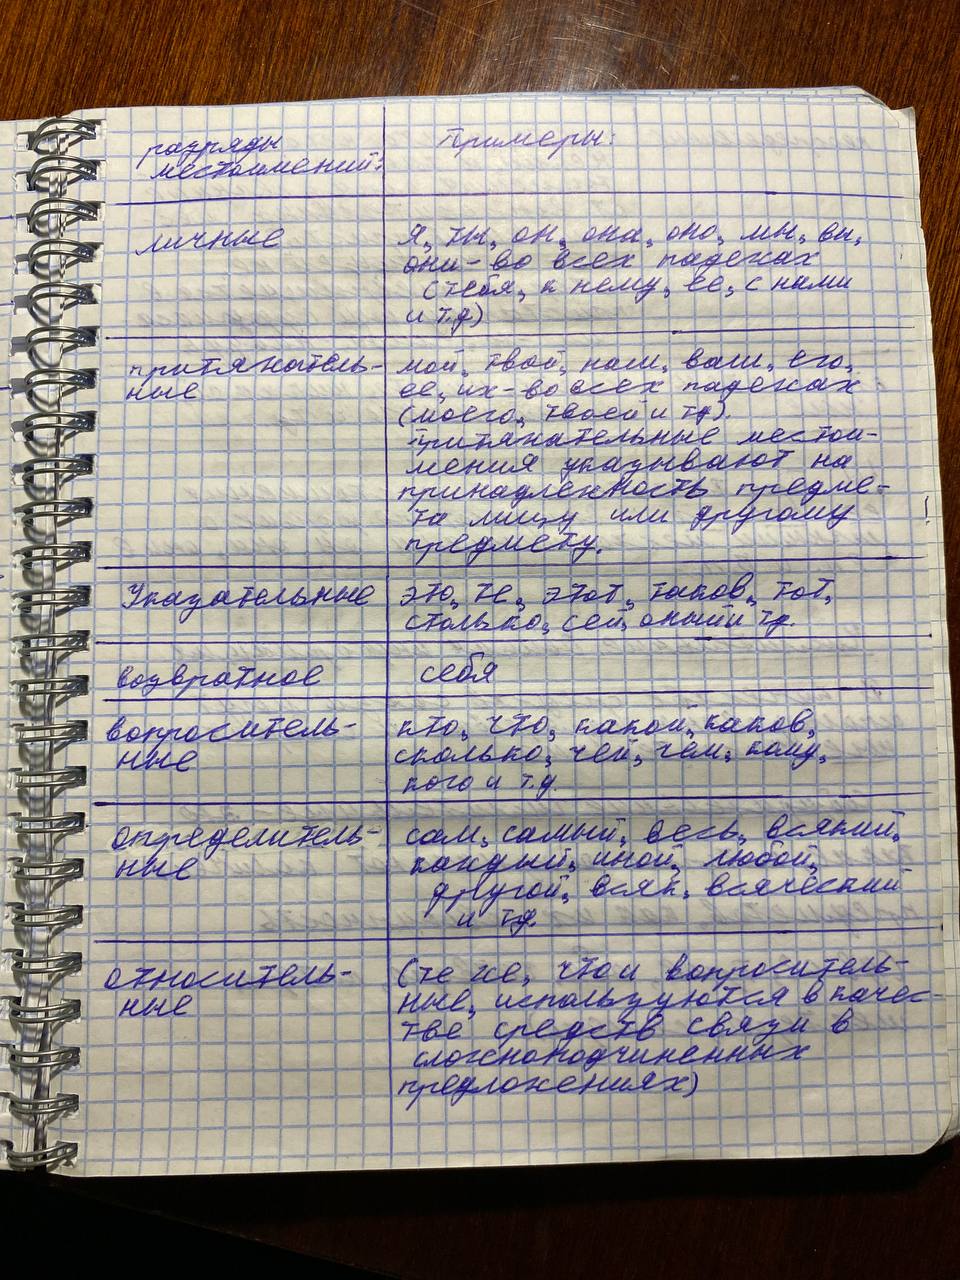 разряды
местоимений:
Примеры:
личные
я, ты, он, она, оно, мы, вы,
они - во всех падежах
(тебя, к нему, ее, с нами
и т.д)
притяжатель-
ные
мой, твой, наш, ваш, его,
ее, их - во всех падежах
(моего, твоей и тд).
Притяжательные местои-
мения указывают на
принадлежность предме-
та лицу или другому
предмету.
Указательные
это, те, этот, таков, тот,
столько, сей, оный и тд.
возвратное
себя
вопроситель-
ные
кто, что, какой, каков,
сколько, чей, чем, кому,
кого и т.д.
определитель-
ные
сам, самый, весь, всякий,
каждый, иной, любой,
другой, всяк, всяческий
и тд.
относитель-
ные
(те же, что и вопроситель-
ные, используются в качес-
тве средств связи в
сложноподчиненных
предложениях)